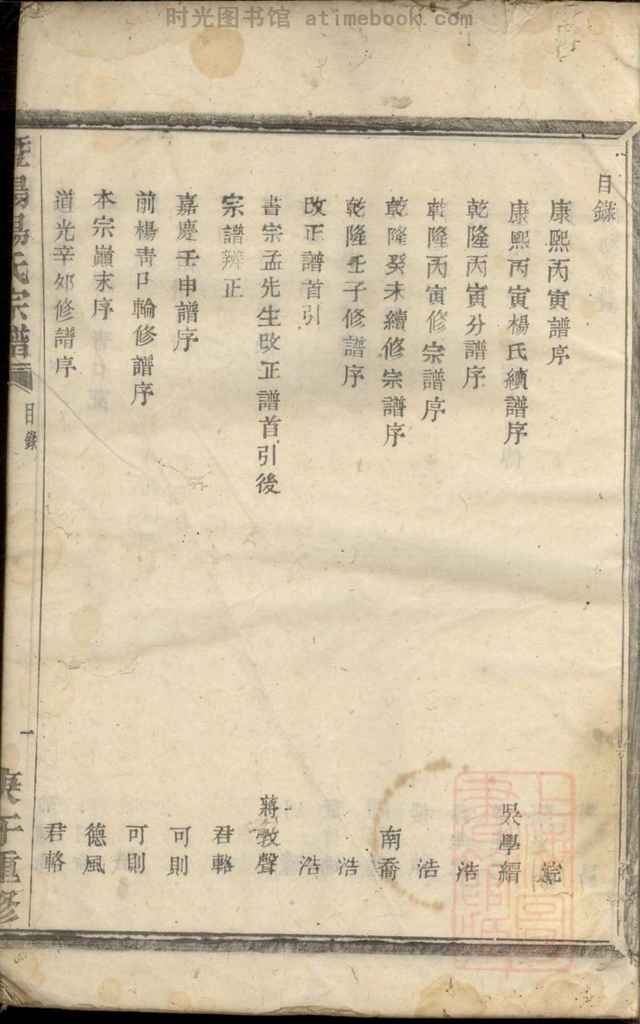 时光图书馆 atimebook.com
目錄
康熙丙寅譜序
康熙丙寅楊氏續譜序 吳學縉
乾隆丙寅分譜序 浩
乾隆丙寅修宗譜序 浩
乾隆癸未續修宗譜序 南喬
乾隆壬子修譜序 浩
改正譜首引 浩
書宗孟先生改正譜首引後 蔣教聲
宗譜辨正 君輅
嘉慶壬申譜序 可則
前楊青口輪修譜序 可則
本宗巔末序 德風
道光辛卯修譜序 君輅
暨陽楊氏宗譜
目錄
一
庚午重修